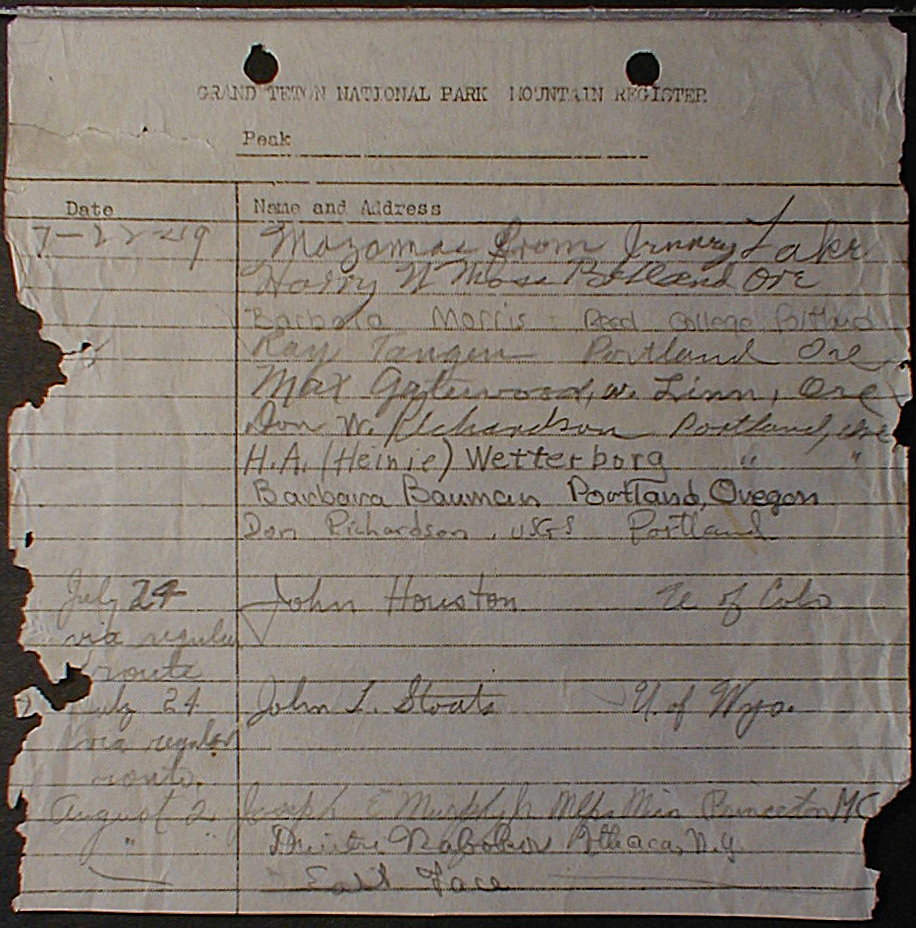 GRAND TETON NATIONAL PARK MOUNTAIN REGISTER
Peak
Date Name and Address
7-22-49 Mazamas from Jenny Lake
Harry N Moss Portland Ore
Barbara Morris - Reed College Portland
Ray Tangen Portland Ore
Max Gatewood, W. Linn, Ore
Don W. Richardson Portland, Ore
H.A. (Heinie) Wetterborg " "
Barbara Bauman Portland, Oregon
Don Richardson, USGS Portland
July 24 John Houston U of Colo
via regular
route
July 24 John L. Stoats U. of Wyo.
via regular
route.
August 2 Joseph E Murphy Jr Mpls Min Princeton MC
" " Dmitri Nabokov Ithaca, N.Y.
East Face